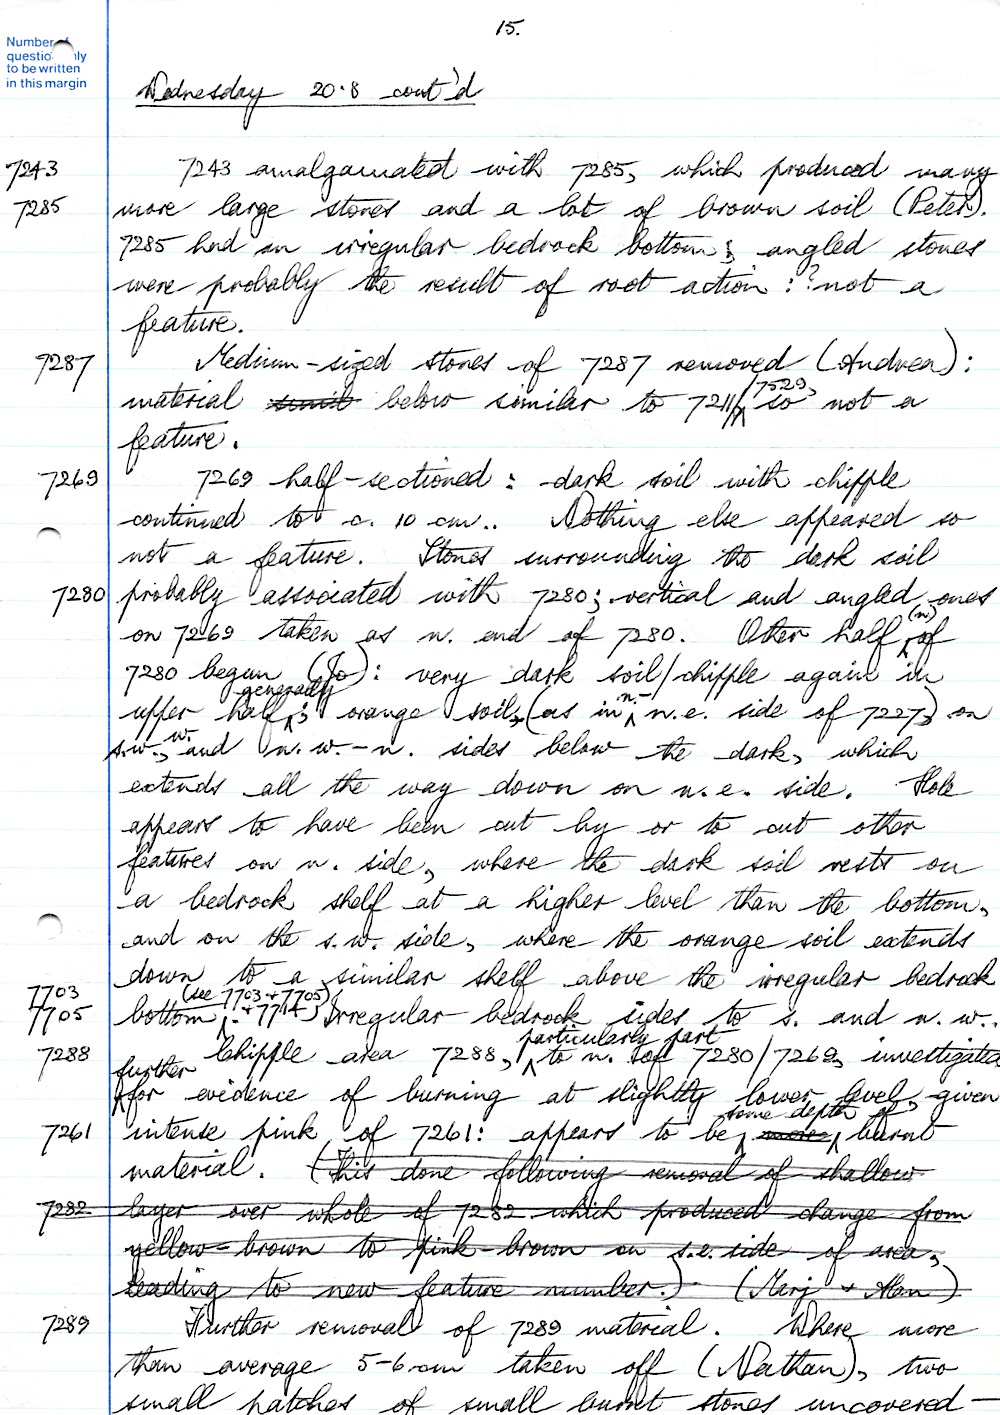 15.
Number of
question only
to be written
in this margin
Wednesday 20.8 cont'd
7243 7243 amalgamated with 7285, which produced many
7285 more large stones and a lot of brown soil (Peter).
7285 had an irregular bedrock bottom; angled stones
were probably the result of root action : ? not a
feature.
7287 Medium-sized stones of 7287 removed (Andrea) :
material ~~simil~~ below similar to 7211/7529, so not a
feature.
7269 7269 half-sectioned : dark soil with chipple
continued to c. 10 cm.. Nothing else appeared so
not a feature. Stones surrounding the dark soil
7280 probably associated with 7280; vertical and angled ones
on 7269 taken as n. end of 7280. Other half (n.) of
7280 begun (Jo) : very dark soil/chipple again in
upper half generally; orange soil, (as in n.- n.e. side of 7227) on
s.w., w. and n.w.-n. sides below the dark, which
extends all the way down on n.e. side. Hole
appears to have been cut by or to cut other
features on n. side, where the dark soil rests on
a bedrock shelf at a higher level than the bottom,
and on the s.w. side, where the orange soil extends
down to a similar shelf above the irregular bedrock
7703
7705 bottom (see 7703 + 7705) + 7714). Irregular bedrock sides to s. and n.w..
7288 Chipple area 7288, particularly part to n. of 7280/7269, investigated
further for evidence of burning at slightly lower level, given
7261 intense pink of 7261: appears to be some depth of ~~more~~ burnt
material. ~~(This done following removal of shallow~~
~~7282~~ ~~layer over whole of 7282 which produced change from~~
~~yellow-brown to pink-brown on s.e. side of area,~~
~~leading to new feature number.) (Merj + Alan)~~
7289 Further removal of 7289 material. Where more
than average 5-6 cm taken off (Nathan), two
small patches of small burnt stones uncovered —